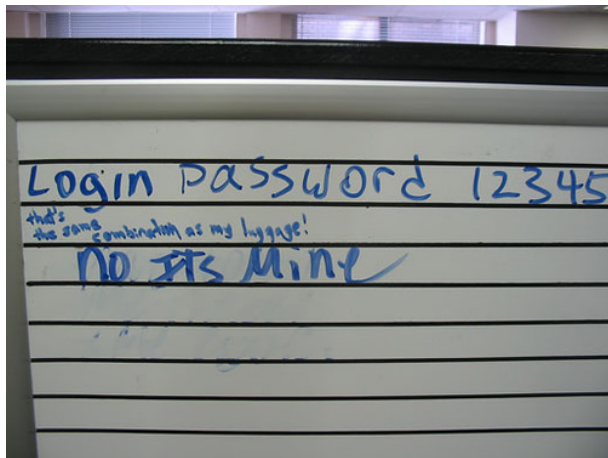 Login Password 12345
that's
the same combination as my luggage!
No Its Mine